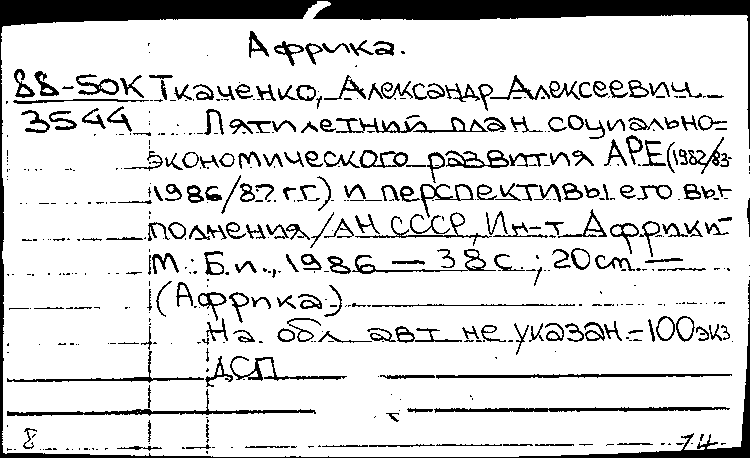 Африка.
88-50К Ткаченко, Александр Алексеевич.
3544 Пятилетний план социально=
экономического развития АРЕ (1982/83-
1986/87 г.г.) и перспективы его вы-
полнения / АН СССР, Ин-т Африки -
М.: Б.и., 1986 — 38 с.; 20 cm —
(Африка.)
На обл авт. не указан = 100 экз
ДСП
8 14